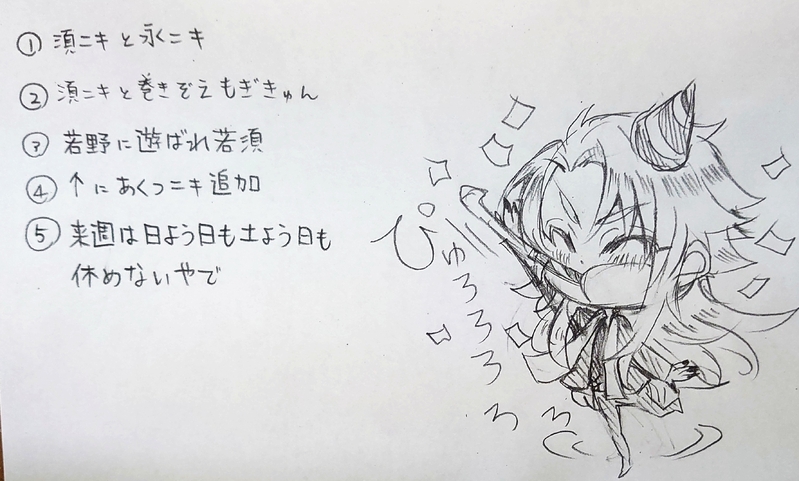 ① 須ニキと永くニキ
② 須ニキと巻きぞえもぎきゅん
③ 若野に遊ばれ若須
④ ↑にあくつニキ追加
⑤ 来週は日よう日も土よう日も
休めないやで
ぴゅろろろろろろ